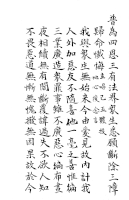 普為四恩三有法界衆生悉願斷除三障
歸命懺悔
我與衆生無始來今由愛見故內計我
人外加惡友不隨喜他一毫之善唯徧
三業廣造衆罪事雖不廣惡心徧布晝
夜相續無有間斷覆諱過失不欲人知
不畏惡道無慚無愧撥無因果故於今